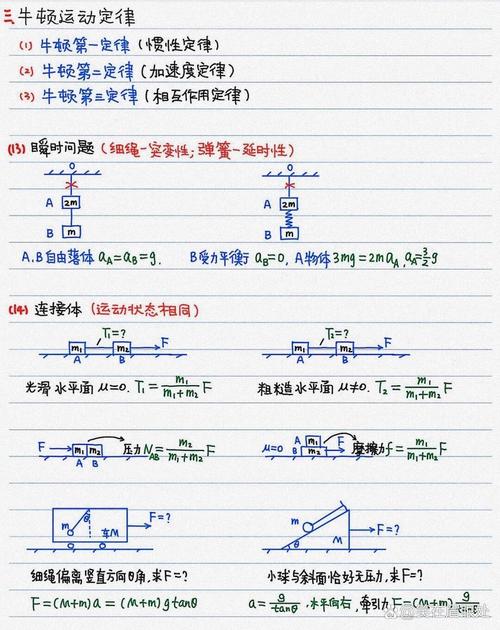 三 牛顿运动定律
(1) 牛顿第一定律(惯性定律)
(2) 牛顿第二定律(加速度定律)
(3) 牛顿第三定律(相互作用定律)
(13) 瞬时问题(细绳-突变性;弹簧-延时性)
O O
A 2m A 2m
B m B m
A.B自由落体 aA=aB=g. B受力平衡 aB=0, A物体3mg=2maA, aA=3/2g
(14) 连接体(运动状态相同)
T1=? T2=?
m1 m2 F m1 m2 F
A B A B
光滑水平面 μ=0. T1=m1/(m1+m2)F 粗糙水平面 μ≠0. T2=m1/(m1+m2)F
F m1 m2 压力NAB=m2/(m1+m2)F μ=0 A m1 B m2 F 摩擦力f=m1/(m1+m2)F
A B
m θ 车M F=? m θ M F=?
细绳偏离竖直方向θ角,求F=? 小球与斜面恰好无压力,求F=?
F=(M+m)a=(M+m)gtanθ a=g/tanθ,水平向右,牵引力F=(M+m)g/tanθ